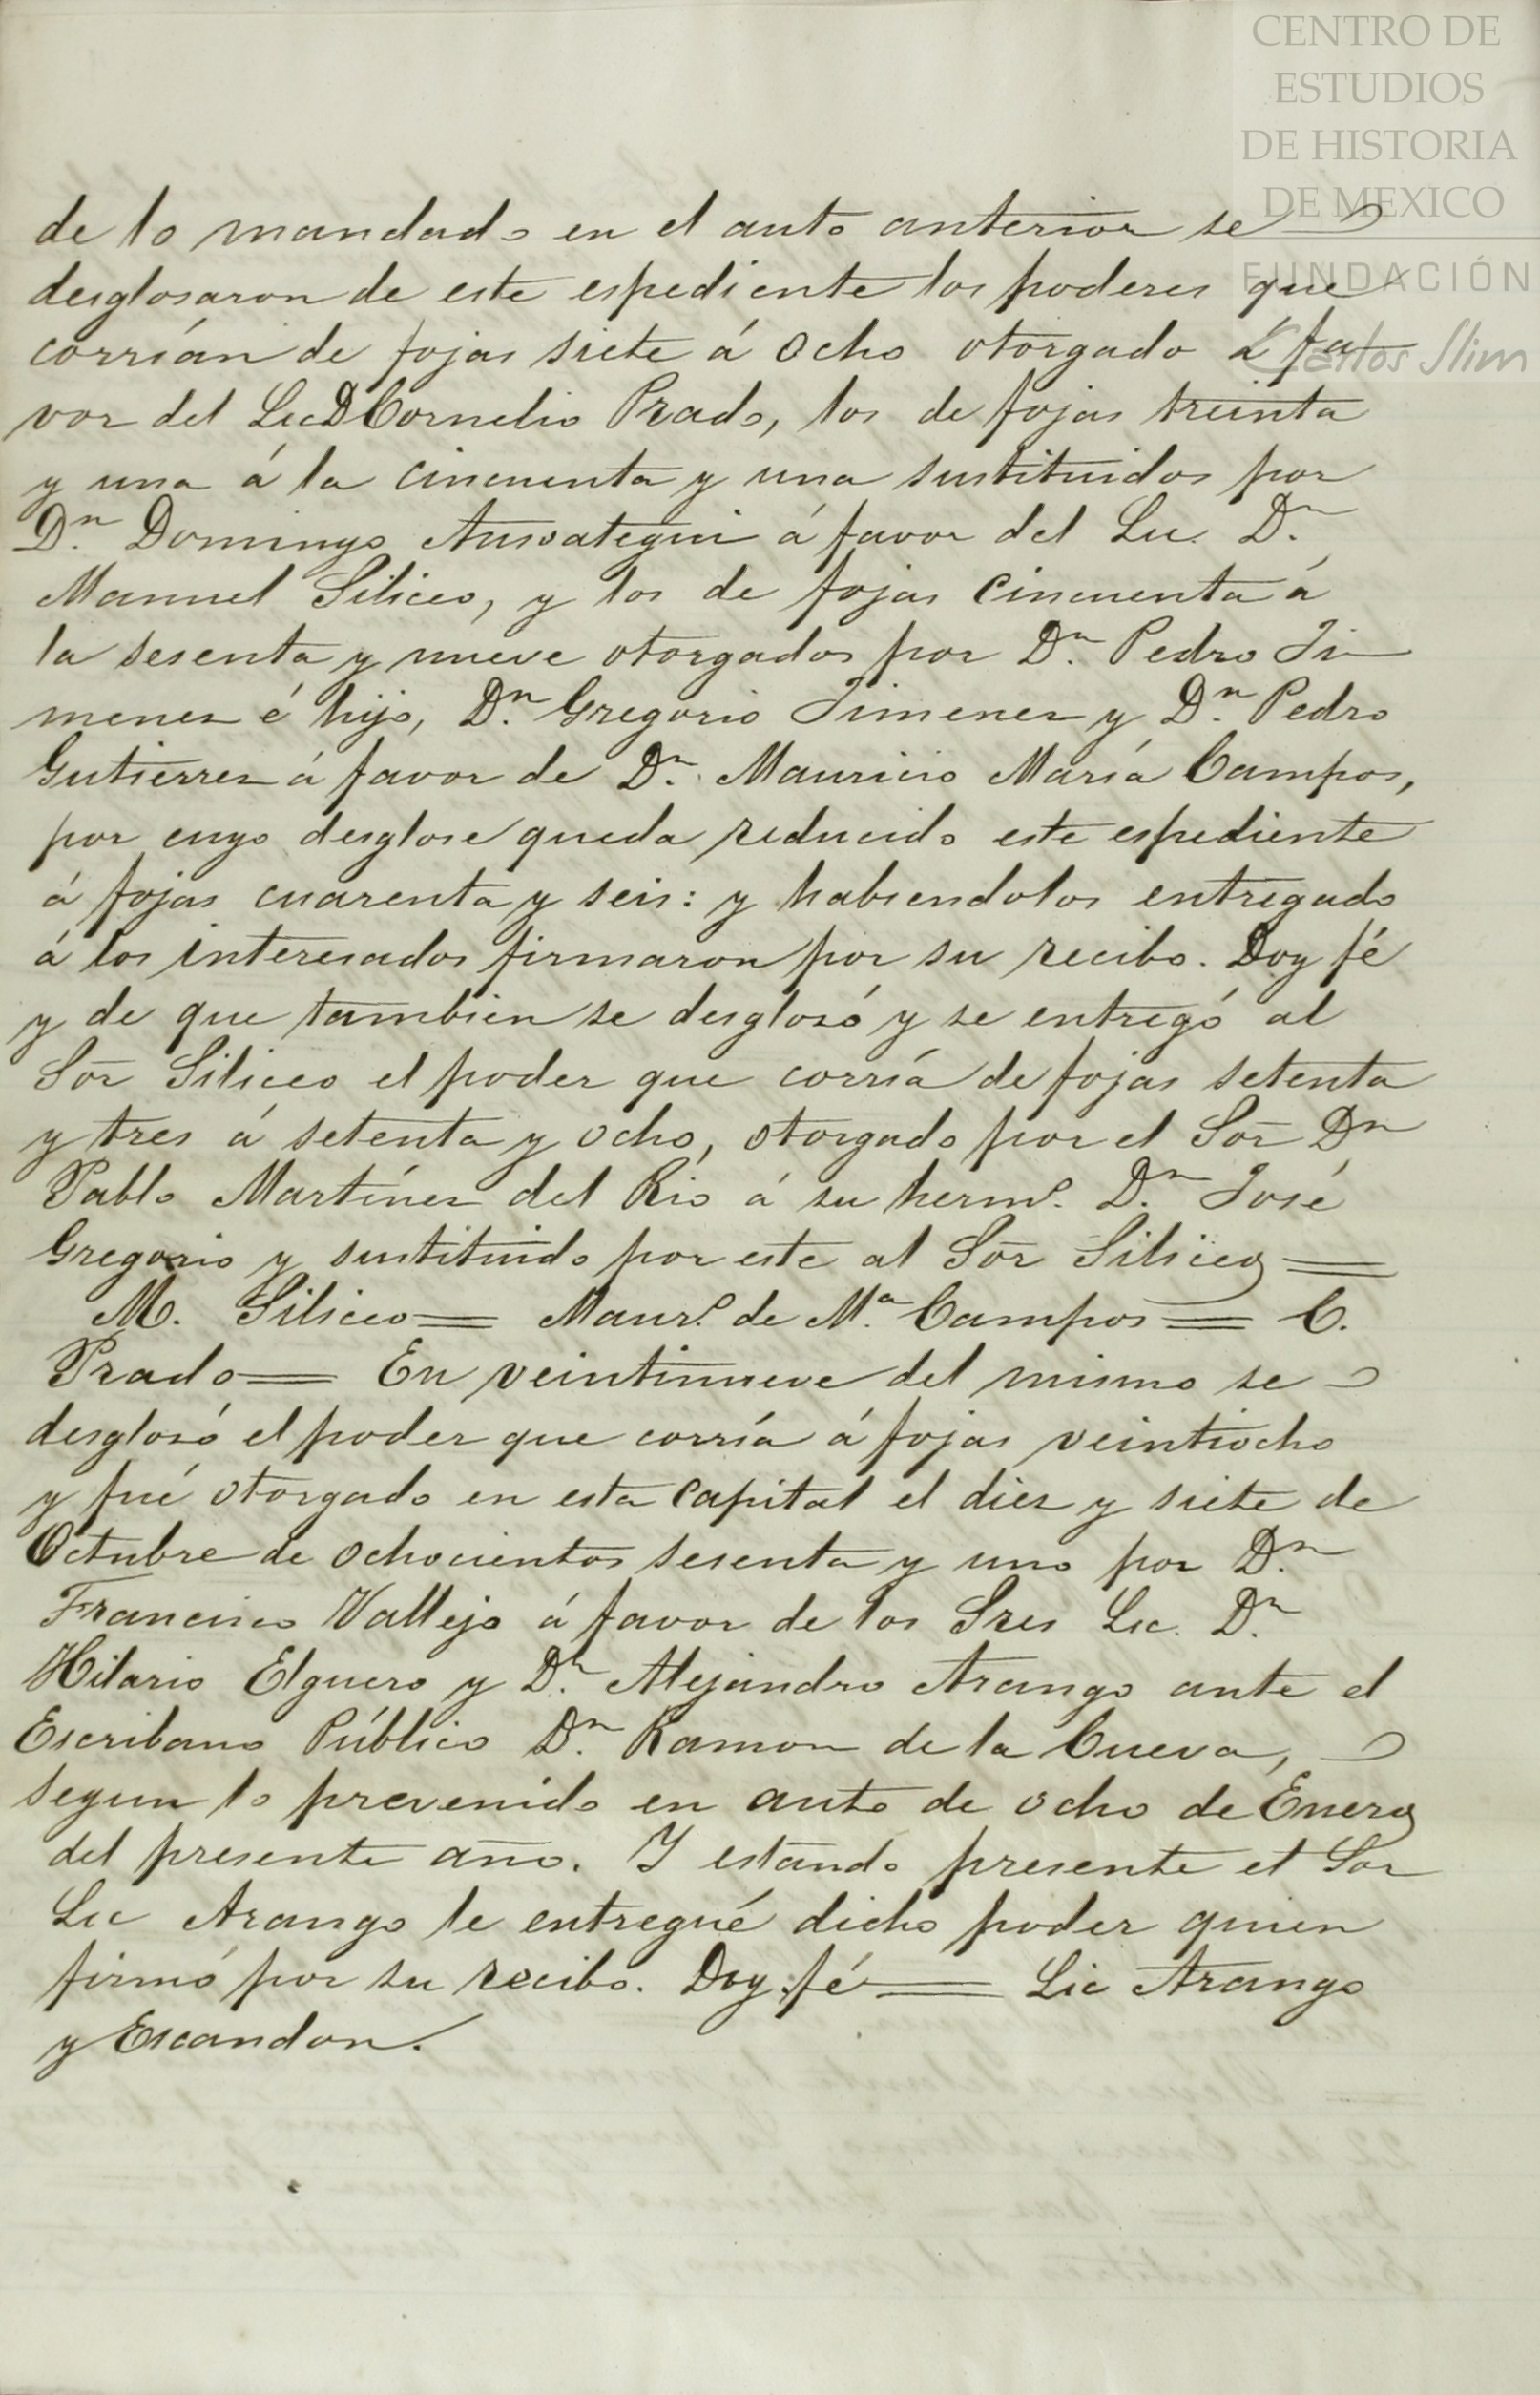 CENTRO DE
ESTUDIOS
DE HISTORIA
DE MEXICO
FUNDACIÓN
Carlos Slim
de lo mandado en el auto anterior se
desglosaron de este espediente los poderes que
corrían de fojas siete á ocho otorgado á fa
vor del Lic D Cornelio Prado, los de fojas treinta
y una á la cincuenta y una sustituidos por
Dn. Domingo Ansoategui á favor del Lic. Dn.
Manuel Siliceo, y los de fojas cincuenta á
la sesenta y nueve otorgados por Dn. Pedro Ji
menez é hijo, Dn. Gregorio Jimenez y Dn. Pedro
Gutierrez á favor de Dn. Mauricio María Campos,
por cuyo desglose queda reducido este espediente
á fojas cuarenta y seis: y habiendolos entregado
á los interesados firmaron por su recibo. Doy fé
y de que tambien se desglosó y se entregó al
Sor Siliceo el poder que corría de fojas setenta
y tres á setenta y ocho, otorgado por el Sor Dn
Pablo Martínez del Rio á su hermo. Dn. José
Gregorio y sustituido por este al Sor Siliceo =
M. Siliceo = Mauro. de Ma. Campos = C.
Prado = En veintinueve del mismo se
desglosó el poder que corría á fojas veintiocho
y fué otorgado en esta capital el diez y siete de
Octubre de ochocientos sesenta y uno por Dn.
Francisco Vallejo á favor de los Sres Lic. Dn.
Hilario Elguero y Dn. Alejandro Arango ante el
Escribano Público Dn. Ramon de la Cueva,
segun lo prevenido en auto de ocho de Enero
del presente año. Y estando presente el Sor
Lic Arango le entregué dicho poder quien
firmó por su recibo. Doy fé = Lic Arango
y Escandon.